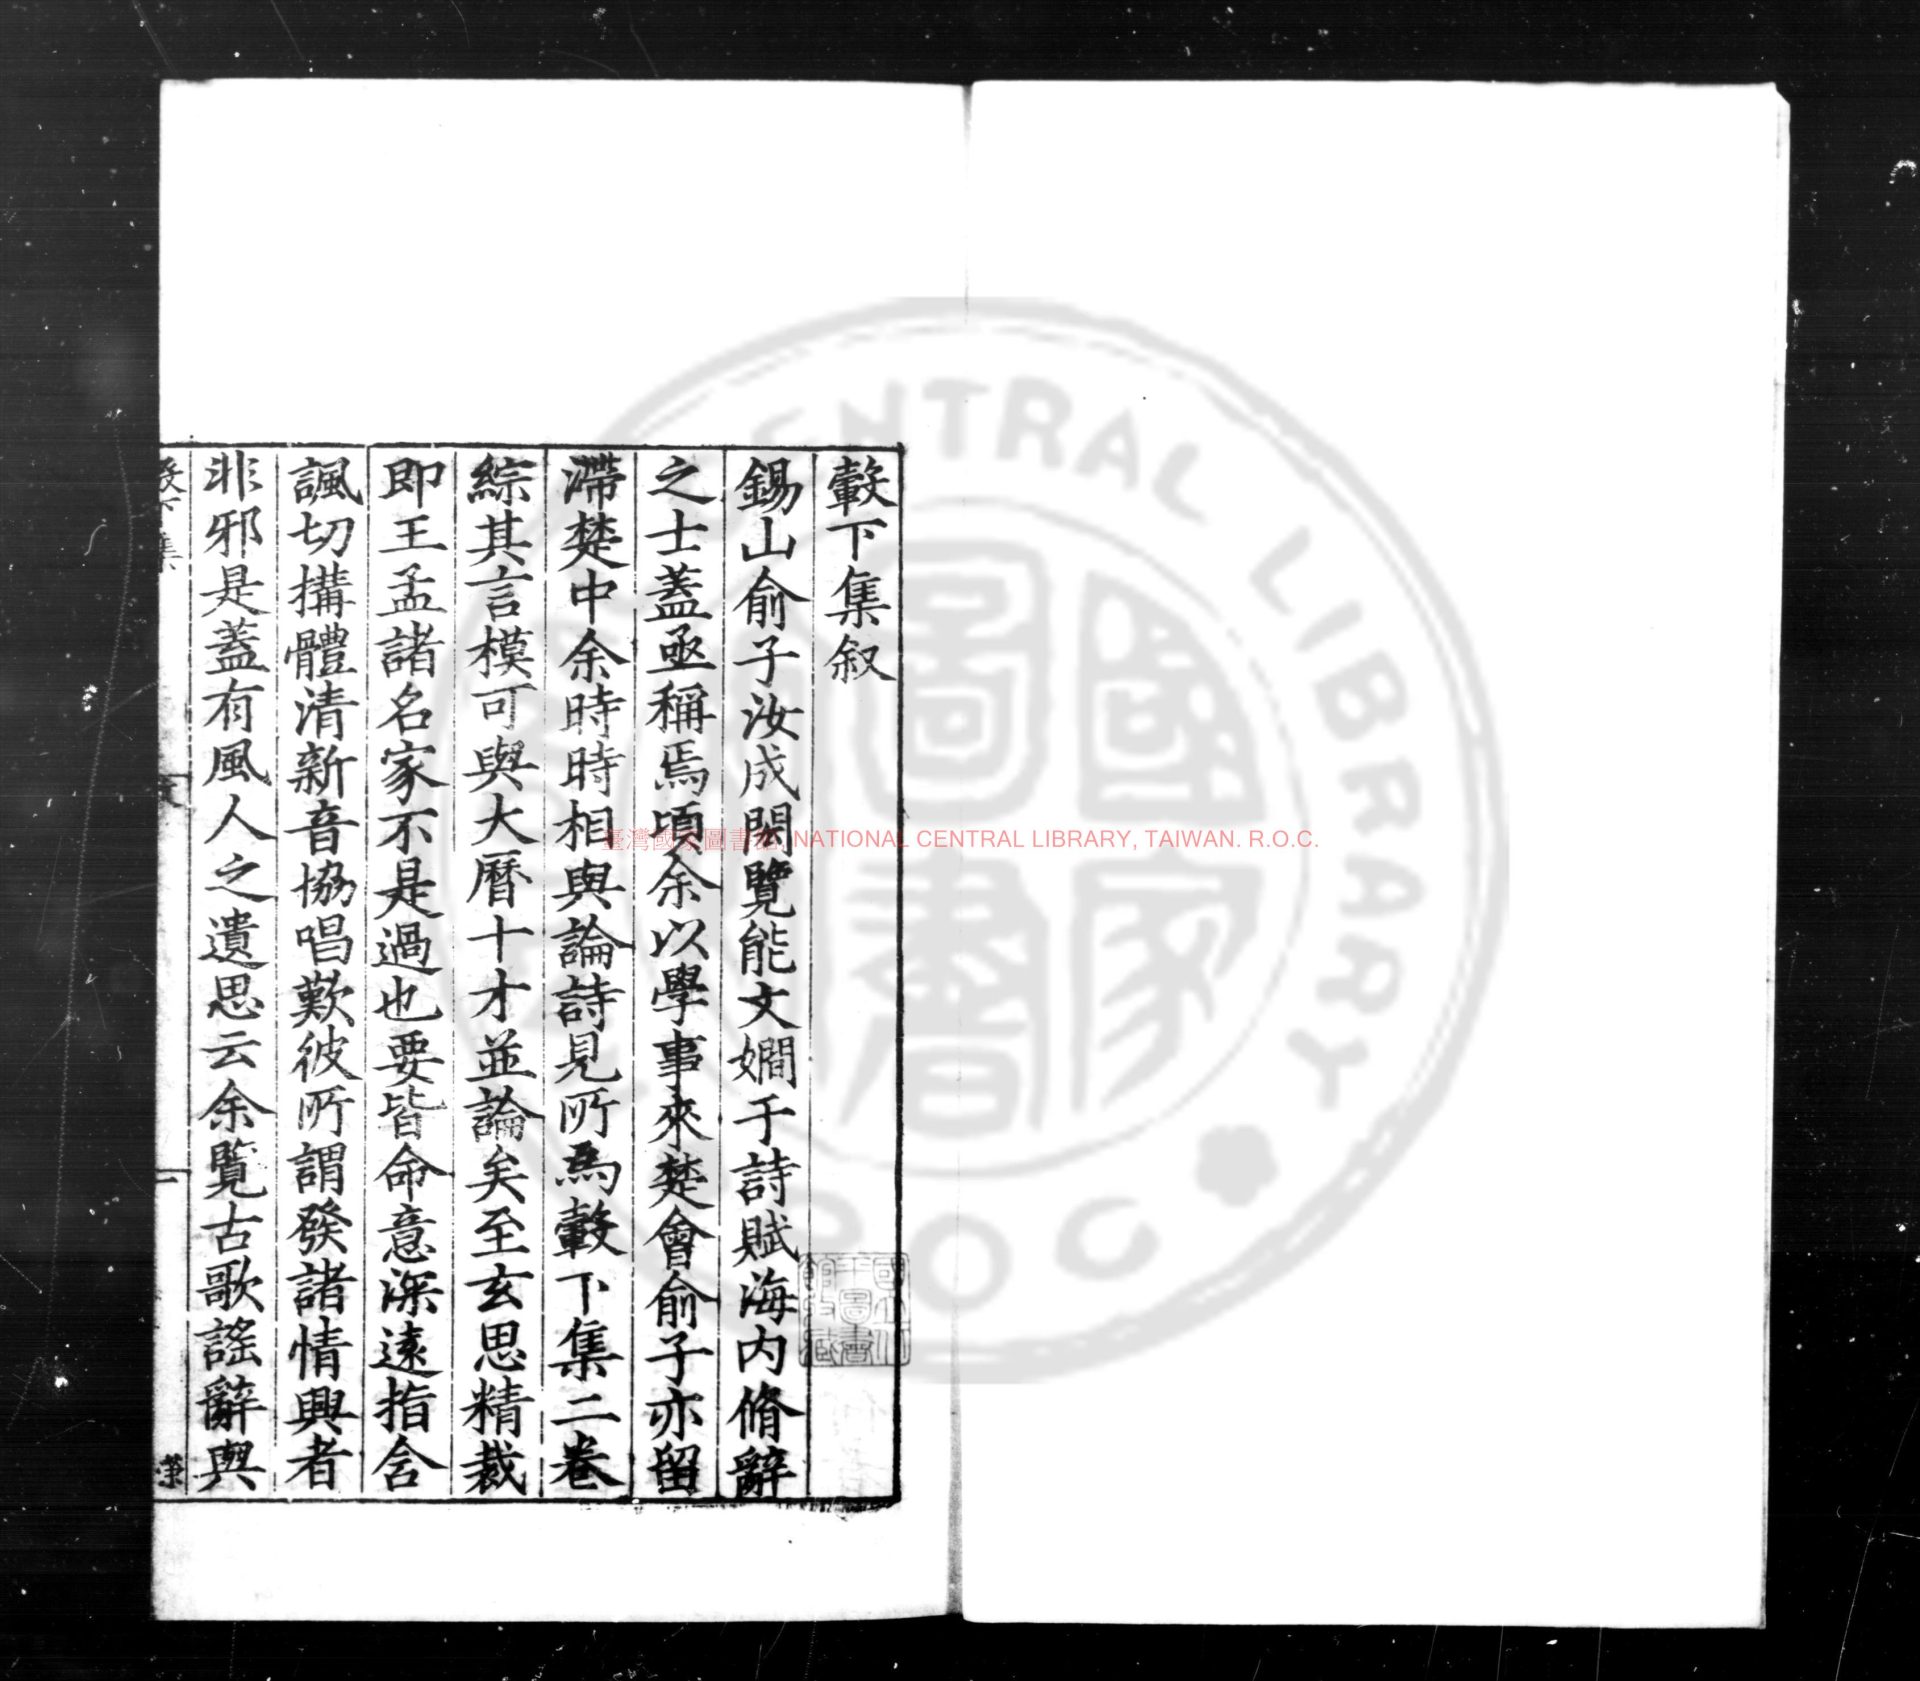 轂下集叙
錫山俞子汝成閎覽能文嫺于詩賦海内脩辭
之士蓋亟稱焉頃余以學事來楚會俞子亦留
滯楚中余時時相與論詩見所爲轂下集二卷
綜其言模可與大曆十才並論矣至玄思精裁
即王孟諸名家不是過也要皆命意深遠指含
諷切搆體清新音協唱歎彼所謂發諸情興者
非邪是蓋有風人之遺思云余覽古歌謠辭與
臺灣國家圖書館, NATIONAL CENTRAL LIBRARY, TAIWAN. R.O.C.
CENTRAL LIBRARY
國家圖書